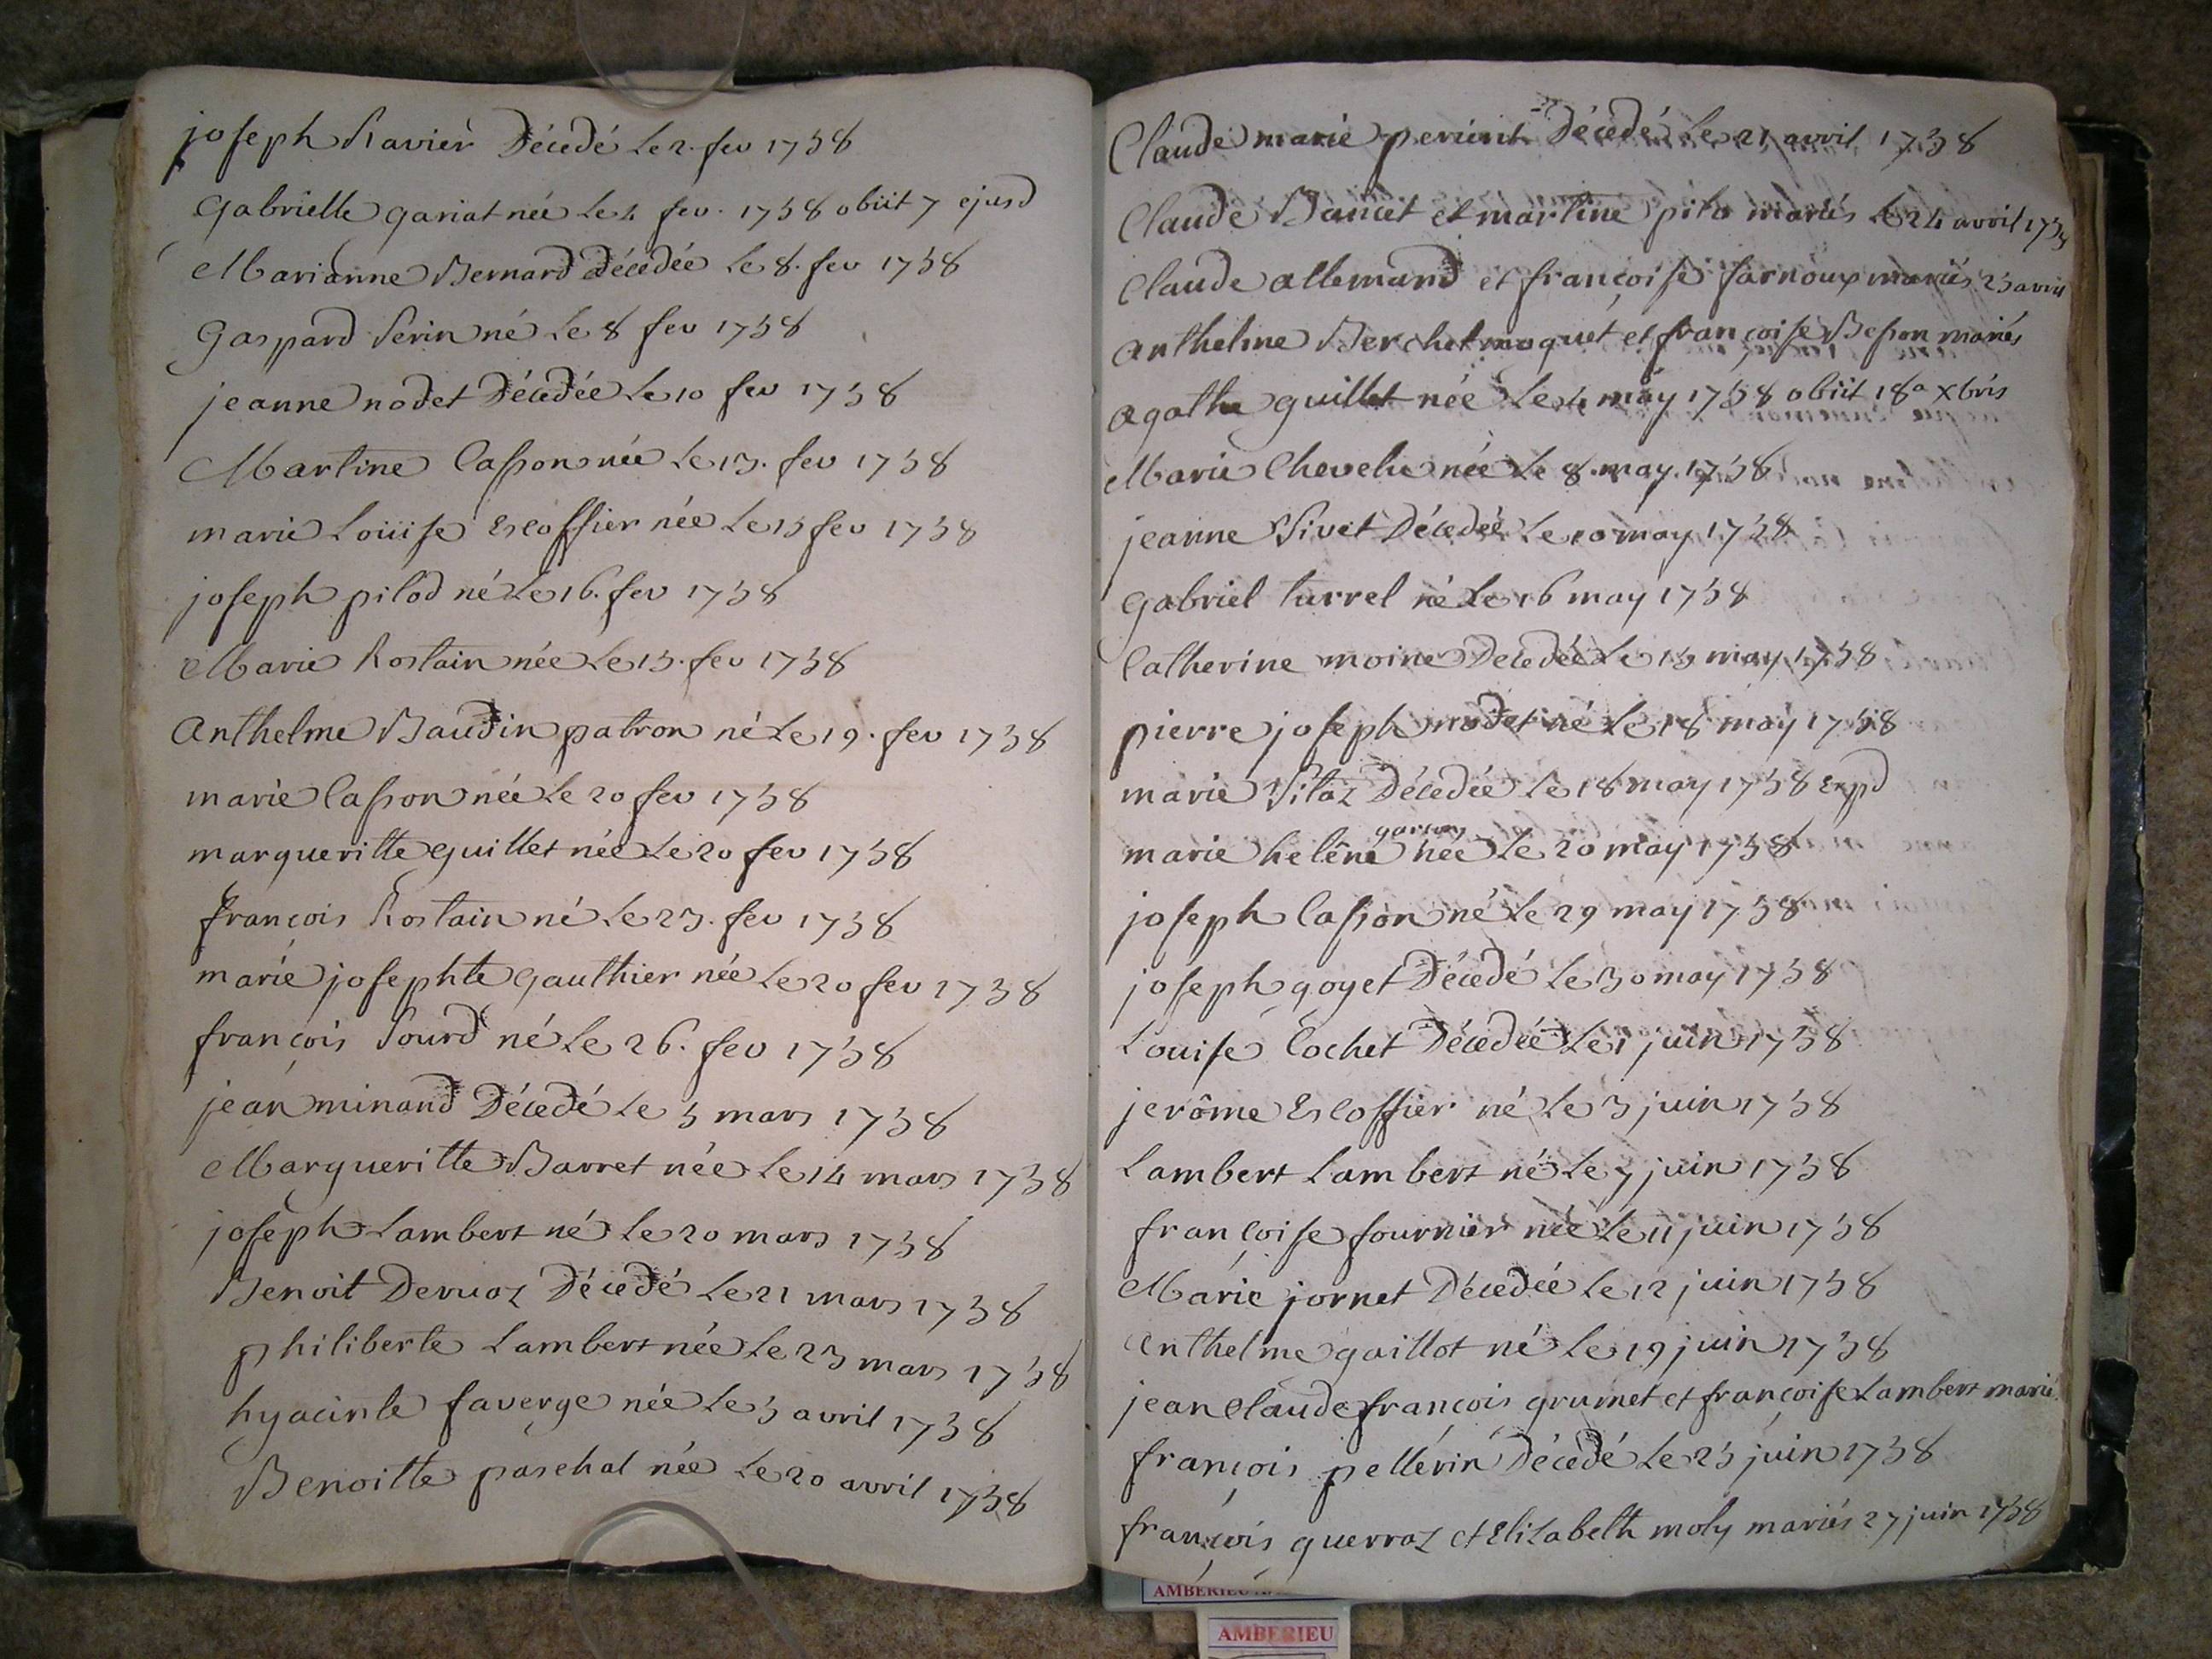 joseph Ravier Décedé le 2. fev 1738
Gabrielle gariat née le 4 fev. 1738 obiit 7 ejusd
Marianne Bernard décedée le 8. fev 1738
Gaspard Serin né le 8 fev 1738
jeanne nodet Décedée le 10 fev 1738
Martine Casson née le 13. fev 1738
marie Louise Escoffier née le 13 fev 1738
joseph pilod né le 16. fev 1738
Marie Rostain née le 13. fev 1738
Anthelme Baudin patron né le 19. fev 1738
marie Casson née le 20 fev 1738
margueritte guillet née le 20 fev 1738
françois Rostain né le 23. fev 1738
marie josephte gauthier née le 20 fev 1738
françois Sourd né le 26. fev 1738
jean minand Décedé le 3 mars 1738
Margueritte Barret née le 14 mars 1738
joseph Lambert né le 20 mars 1738
Benoit Deruaz Décedé le 21 mars 1738
philiberte Lambert née le 23 mars 1738
hyacinte faverge née le 3 avril 1738
Benoitte paschal née le 20 avril 1738
Claude marie Décedé le 21 avril 1738
Claude et martine pilo mariés le 24 avril 1738
Claude allemand et françoise mariés 23 avril
anthelme Berchet moquet et françoise Besson mariés
agathe guillet née le 4 may 1738 obiit 18a Xbris
Marie Chevelu née le 8. may. 1738
jeanne Sivet Décedée le 10 may 1738
Gabriel turrel né le 16 may 1738
Catherine moine Decedée le 13 may 1738
pierre joseph nodet né le 18 may 1738
marie Décedée le 18 may 1738
garson
marie heléne née le 20 may 1738
joseph Casson né le 29 may 1738
joseph goyet Décedé le 30 may 1738
Louise Cochet Décedée le 1 juin 1738
jerôme Escoffier né le 3 juin 1738
Lambert Lambert né le 7 juin 1738
françoise fournier née le 11 juin 1738
Marie jornet Décedée le 12 juin 1738
anthelme gaillot né le 19 juin 1738
jean Claude françois grumet et françoise Lambert marié
françois pellerin Décedé le 23 juin 1738
françois guerraz et Elizabeth moly mariés 27 juin 1738
AMBERIEU
AMBERIEU